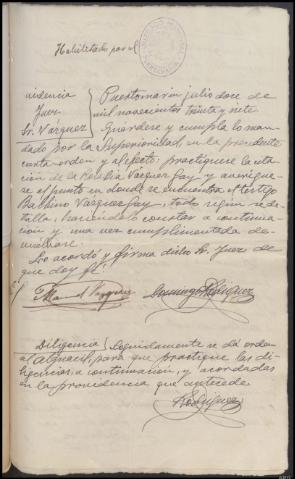 Habilitado para el
Providencia
Juez
Sr. Vazquez
Puentemarin julio doce de
mil novecientos treinta y siete
Guardese y cumpla lo man-
dado por la Superioridad, en la precedente
carta orden y al efecto, practiquese la cita-
ción de la Vazquez Gay y averigue-
se el punto en donde se encuentra el testigo
Vazquez Gay, todo según se de-
talla, haciendolo constar a continua-
ción y una vez cumplimentada de-
vuelvase.
Lo acordó y firma dicho Sr. Juez de
que doy fé.
Manuel Vazquez
Domingo Rodriguez
Diligencia
Seguidamente se dá orden
al Alguacil para que practique las di-
ligencias a continuación, y acordadas
en la providencia que antecede
Rodriguez